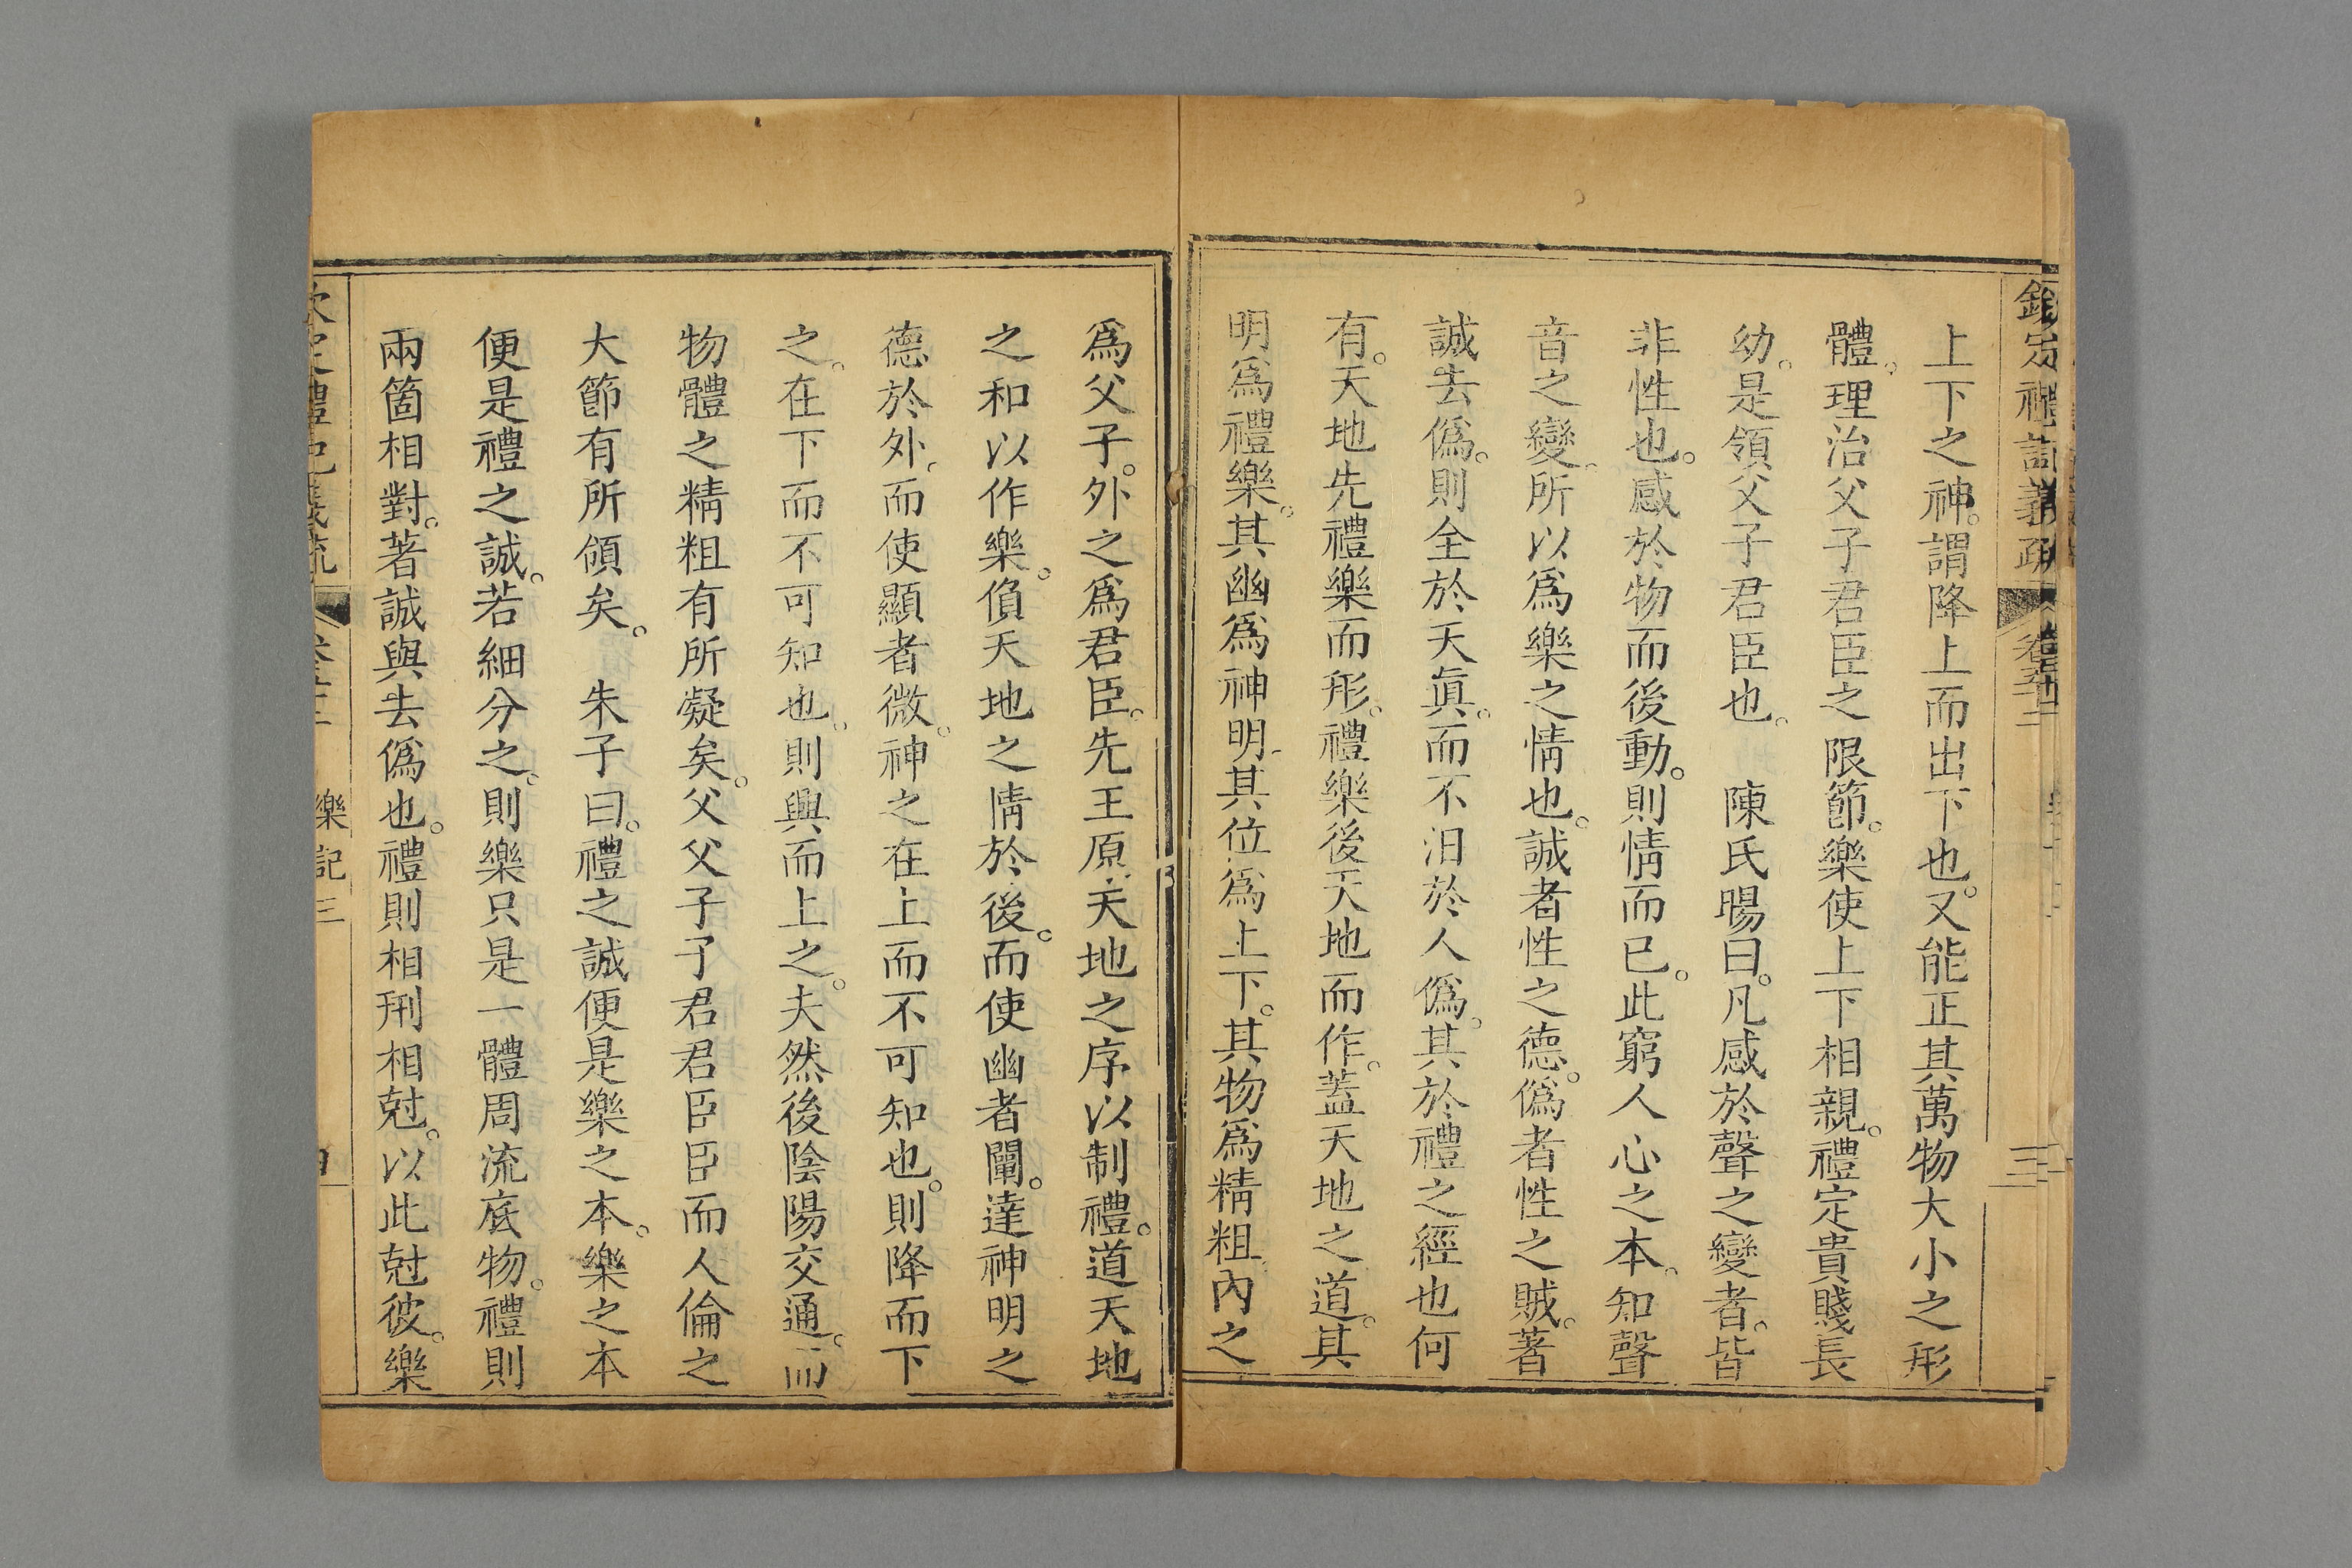 欽定禮記義疏 卷五十二 三
上下之神。謂降上而出下也。又能正其萬物大小之形
體。理治父子君臣之限節。樂使上下相親。禮定貴賤長
幼。是領父子君臣也。 陳氏暘曰。凡感於聲之變者。皆
非性也。感於物而後動。則情而已。此窮人心之本。知聲
音之變。所以爲樂之情也。誠者性之德。僞者性之賊。著
誠去僞。則全於天眞。而不汨於人僞。其於禮之經也何
有。天地先禮樂而形。禮樂後天地而作。蓋天地之道。其
明爲禮樂。其幽爲神明。其位爲上下。其物爲精粗。內之
爲父子。外之爲君臣。先王原天地之序以制禮。道天地
之和以作樂。偩天地之情於後。而使幽者闡。達神明之
德於外。而使顯者微。神之在上而不可知也。則降而下
之。在下而不可知也。則興而上之。夫然後陰陽交通。而
物體之精粗有所凝矣。父父子子君君臣臣而人倫之
大節有所領矣。 朱子曰。禮之誠便是樂之本。樂之本
便是禮之誠。若細分之。則樂只是一體周流底物。禮則
兩箇相對。著誠與去僞也。禮則相刑相尅。以此尅彼。樂
欽定禮記義疏 樂記 三